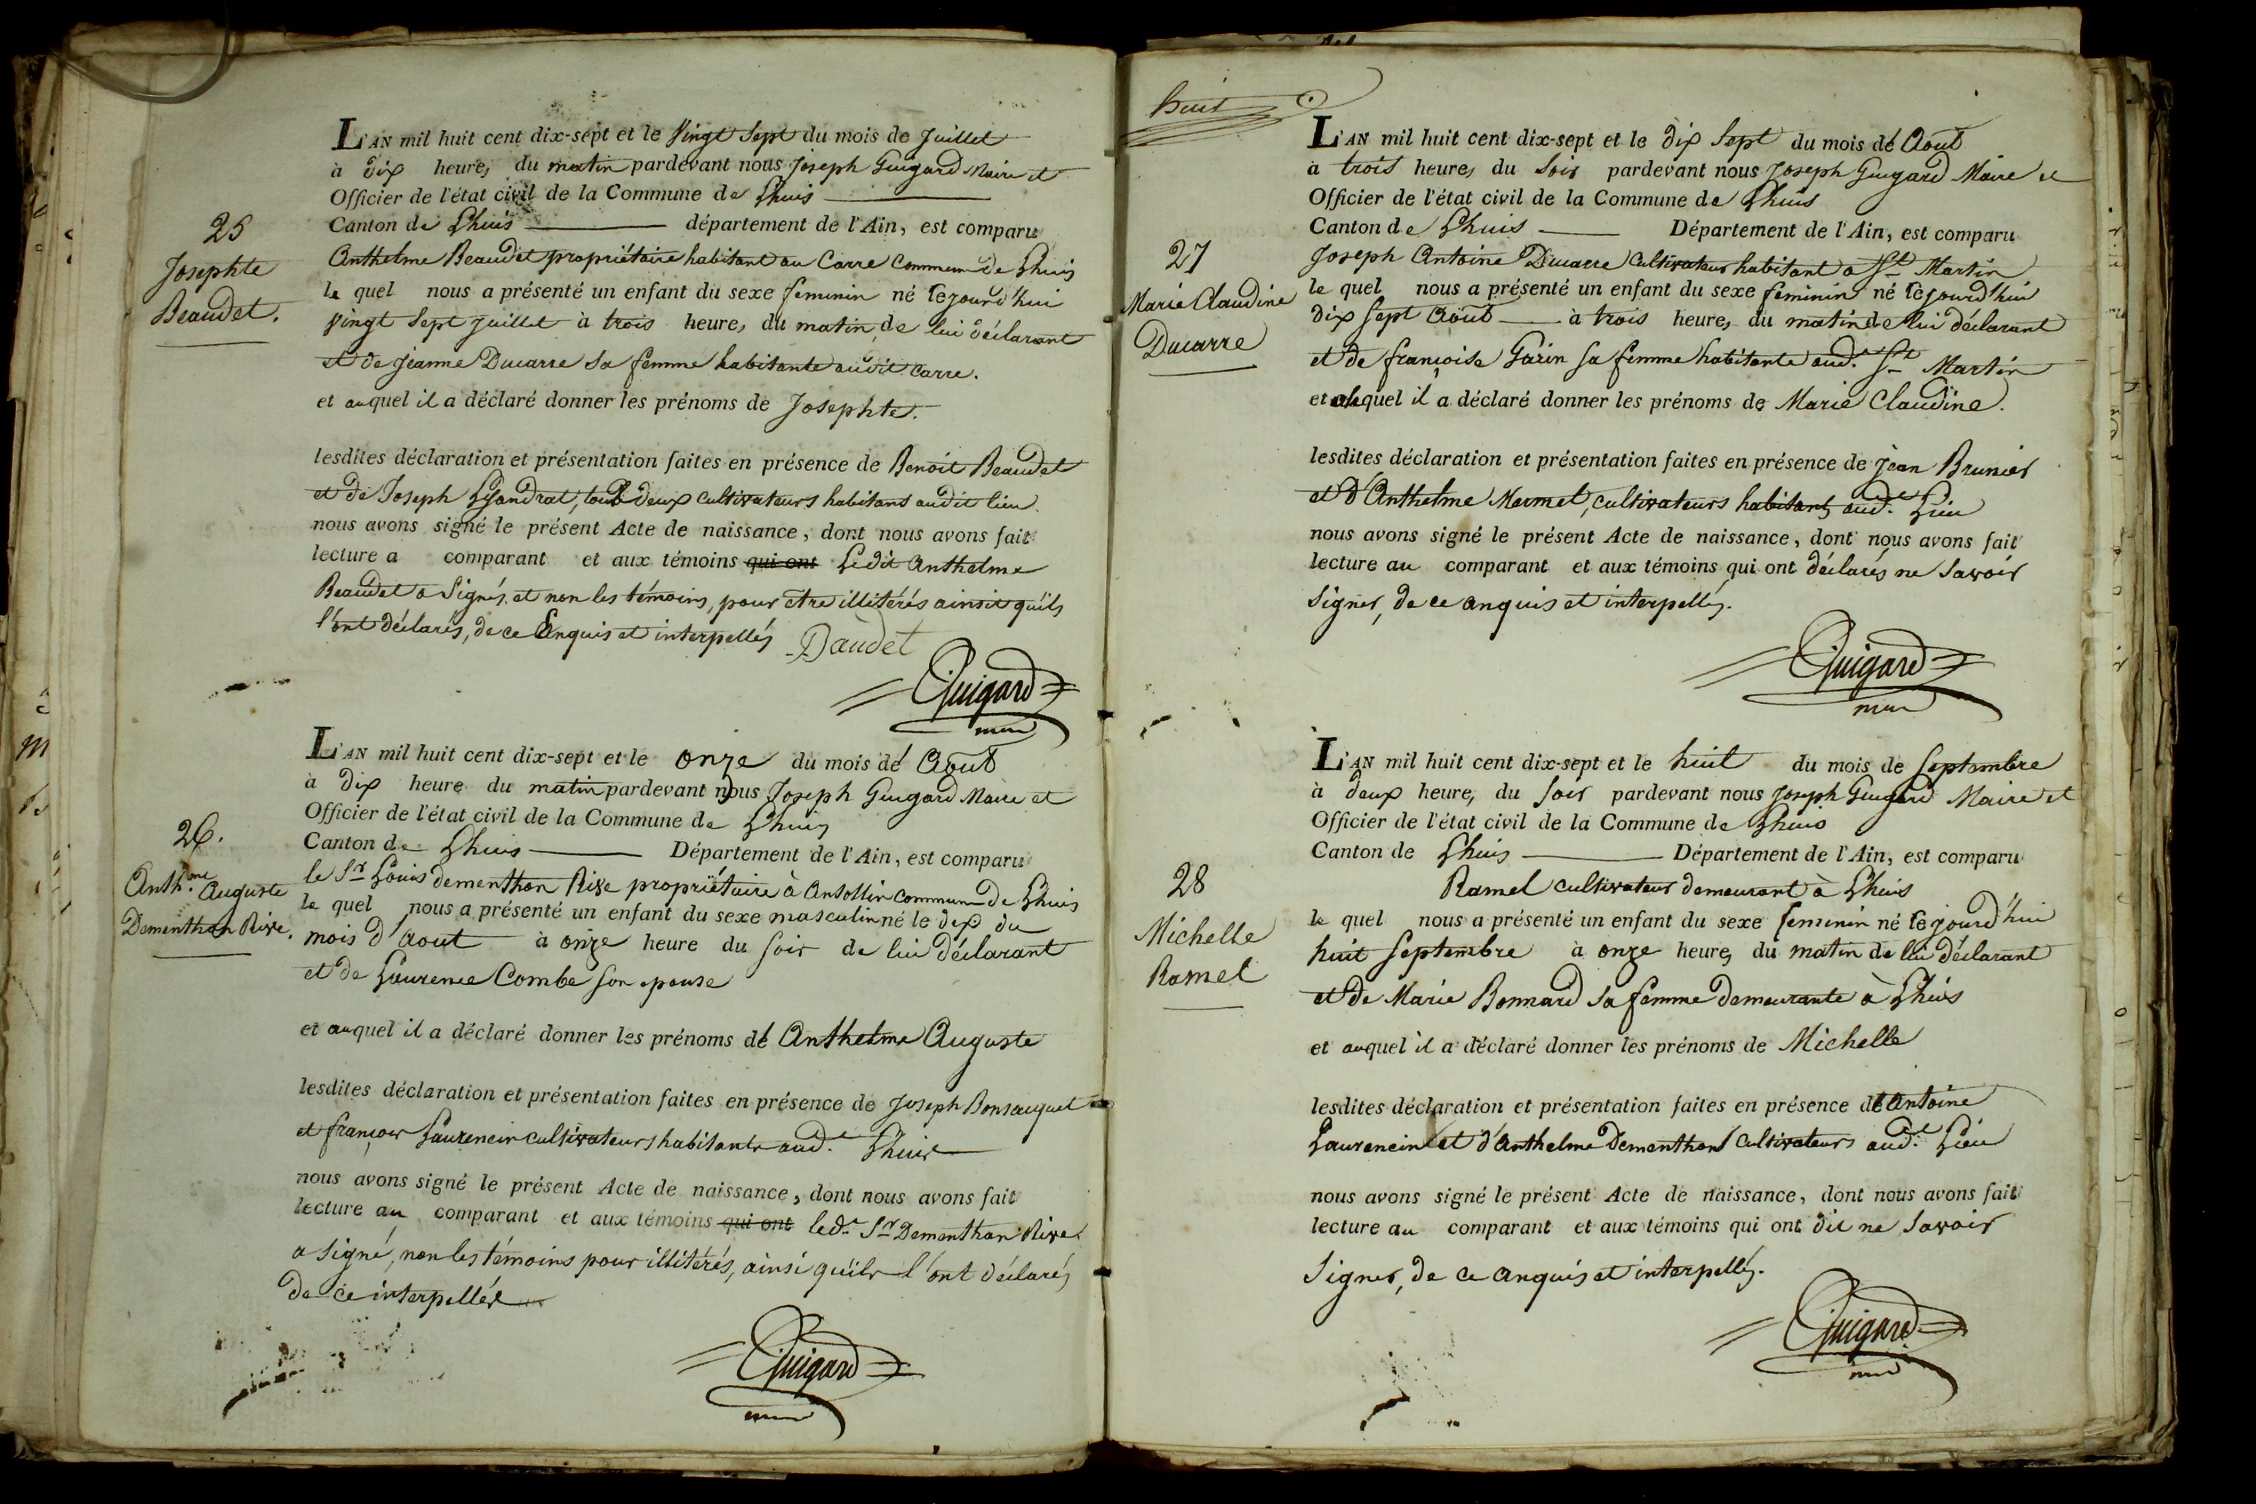 25
Josephte
Beaudet.
L'AN mil huit cent dix-sept et le vingt Sept du mois de Juillet
à dix heures du matin pardevant nous Joseph Guigard Maire et
Officier de l'état civil de la Commune de Lhuis
Canton de Lhuis département de l'Ain, est comparu
Anthelme Beaudet propriétaire habitant au Carre Commune de Lhuis
le quel nous a présenté un enfant du sexe feminin né cejourd'hui
vingt Sept juillet à trois heures du matin, de lui déclarant
et de Jeanne Ducarre sa femme habitante audit Carre.
et auquel il a déclaré donner les prénoms de Josephte.
lesdites déclaration et présentation faites en présence de Benoit Beaudet
et de Joseph tous deux cultivateurs habitans audit lieu.
nous avons signé le présent Acte de naissance, dont nous avons fait
lecture a comparant et aux témoins qui ont Ledit Anthelme
Beaudet a Signés et non les témoins, pour etre illitérés ainsit qu'ils
l'ont déclarés, de ce Enquis et interpellés Baudet
Guigard
26.
Anth.me Auguste
Dementhon Rive.
L'AN mil huit cent dix-sept et le onze du mois de Aout
à dix heure du matin pardevant nous Joseph Guigard Maire et
Officier de l'état civil de la Commune de Lhuis
Canton de Lhuis Département de l'Ain, est comparu
le Sr. Louis dementhon Rive propriétaire à Ansollin Commune De Lhuis
le quel nous a présenté un enfant du sexe masculin né le dix du
mois d'aout à onze heure du soir de lui déclarant
et de Laurence Combe son epouse
et auquel il a déclaré donner les prénoms dé Anthelme Auguste
lesdites déclaration et présentation faites en présence de Joseph
et françois Laurencin cultivateurs habitants aud.t Lhuis
nous avons signé le présent Acte de naissance, dont nous avons fait
lecture au comparant et aux témoins qui ont led.t Sr Dementhon Rive
a Signé, non les témoins pour illitérés, ainsi qu'ils l'ont déclarés
de ce interpellés
Guigard
huit
27
Marie Claudine
Ducarre
L'AN mil huit cent dix-sept et le dix Sept du mois dé Aout
à trois heures du soir pardevant nous Joseph Guigard Maire et
Officier de l'état civil de la Commune de Lhuis
Canton de Lhuis Département de l'Ain, est comparu
Joseph Antoine Ducarre Cultivateur habitant a St. Martin
le quel nous a présenté un enfant du sexe feminin né cejourd'hui
dix Sept Aout à trois heures du matin de lui déclarant
et de françoise Garin sa femme habitante aud.t St. Martin
et alequel il a déclaré donner les prénoms de Marie Claudine.
lesdites déclaration et présentation faites en présence de jean Brunier
et D'Anthelme Mermet, cultivateurs habitants aud.t Lieu
nous avons signé le présent Acte de naissance, dont nous avons fait
lecture au comparant et aux témoins qui ont déclarés ne Savoir
Signer, de ce anquis et interpellés.
Guigard
28
Michelle
Ramel
L'AN mil huit cent dix-sept et le huit du mois de Septembre
à deux heures du soir pardevant nous Joseph Guigard Maire et
Officier de l'état civil de la Commune de Lhuis
Canton de Lhuis Département de l'Ain, est comparu
Ramel cultivateur demeurant à Lhuis
le quel nous a présenté un enfant du sexe feminin né cejourd'hui
huit Septembre à onze heures du matin de lui déclarant
et de Marie Bonnard sa femme demeurante à Lhuis
et auquel il a déclaré donner les prénoms de Michelle
lesdites déclaration et présentation faites en présence dé Antoine
Laurencin et d'Anthelme Dementhon cultivateurs aud.t Lieu
nous avons signé le présent Acte de naissance, dont nous avons fait
lecture au comparant et aux témoins qui ont dit ne Savoir
Signer, de ce anquis et interpellés.
Guigard